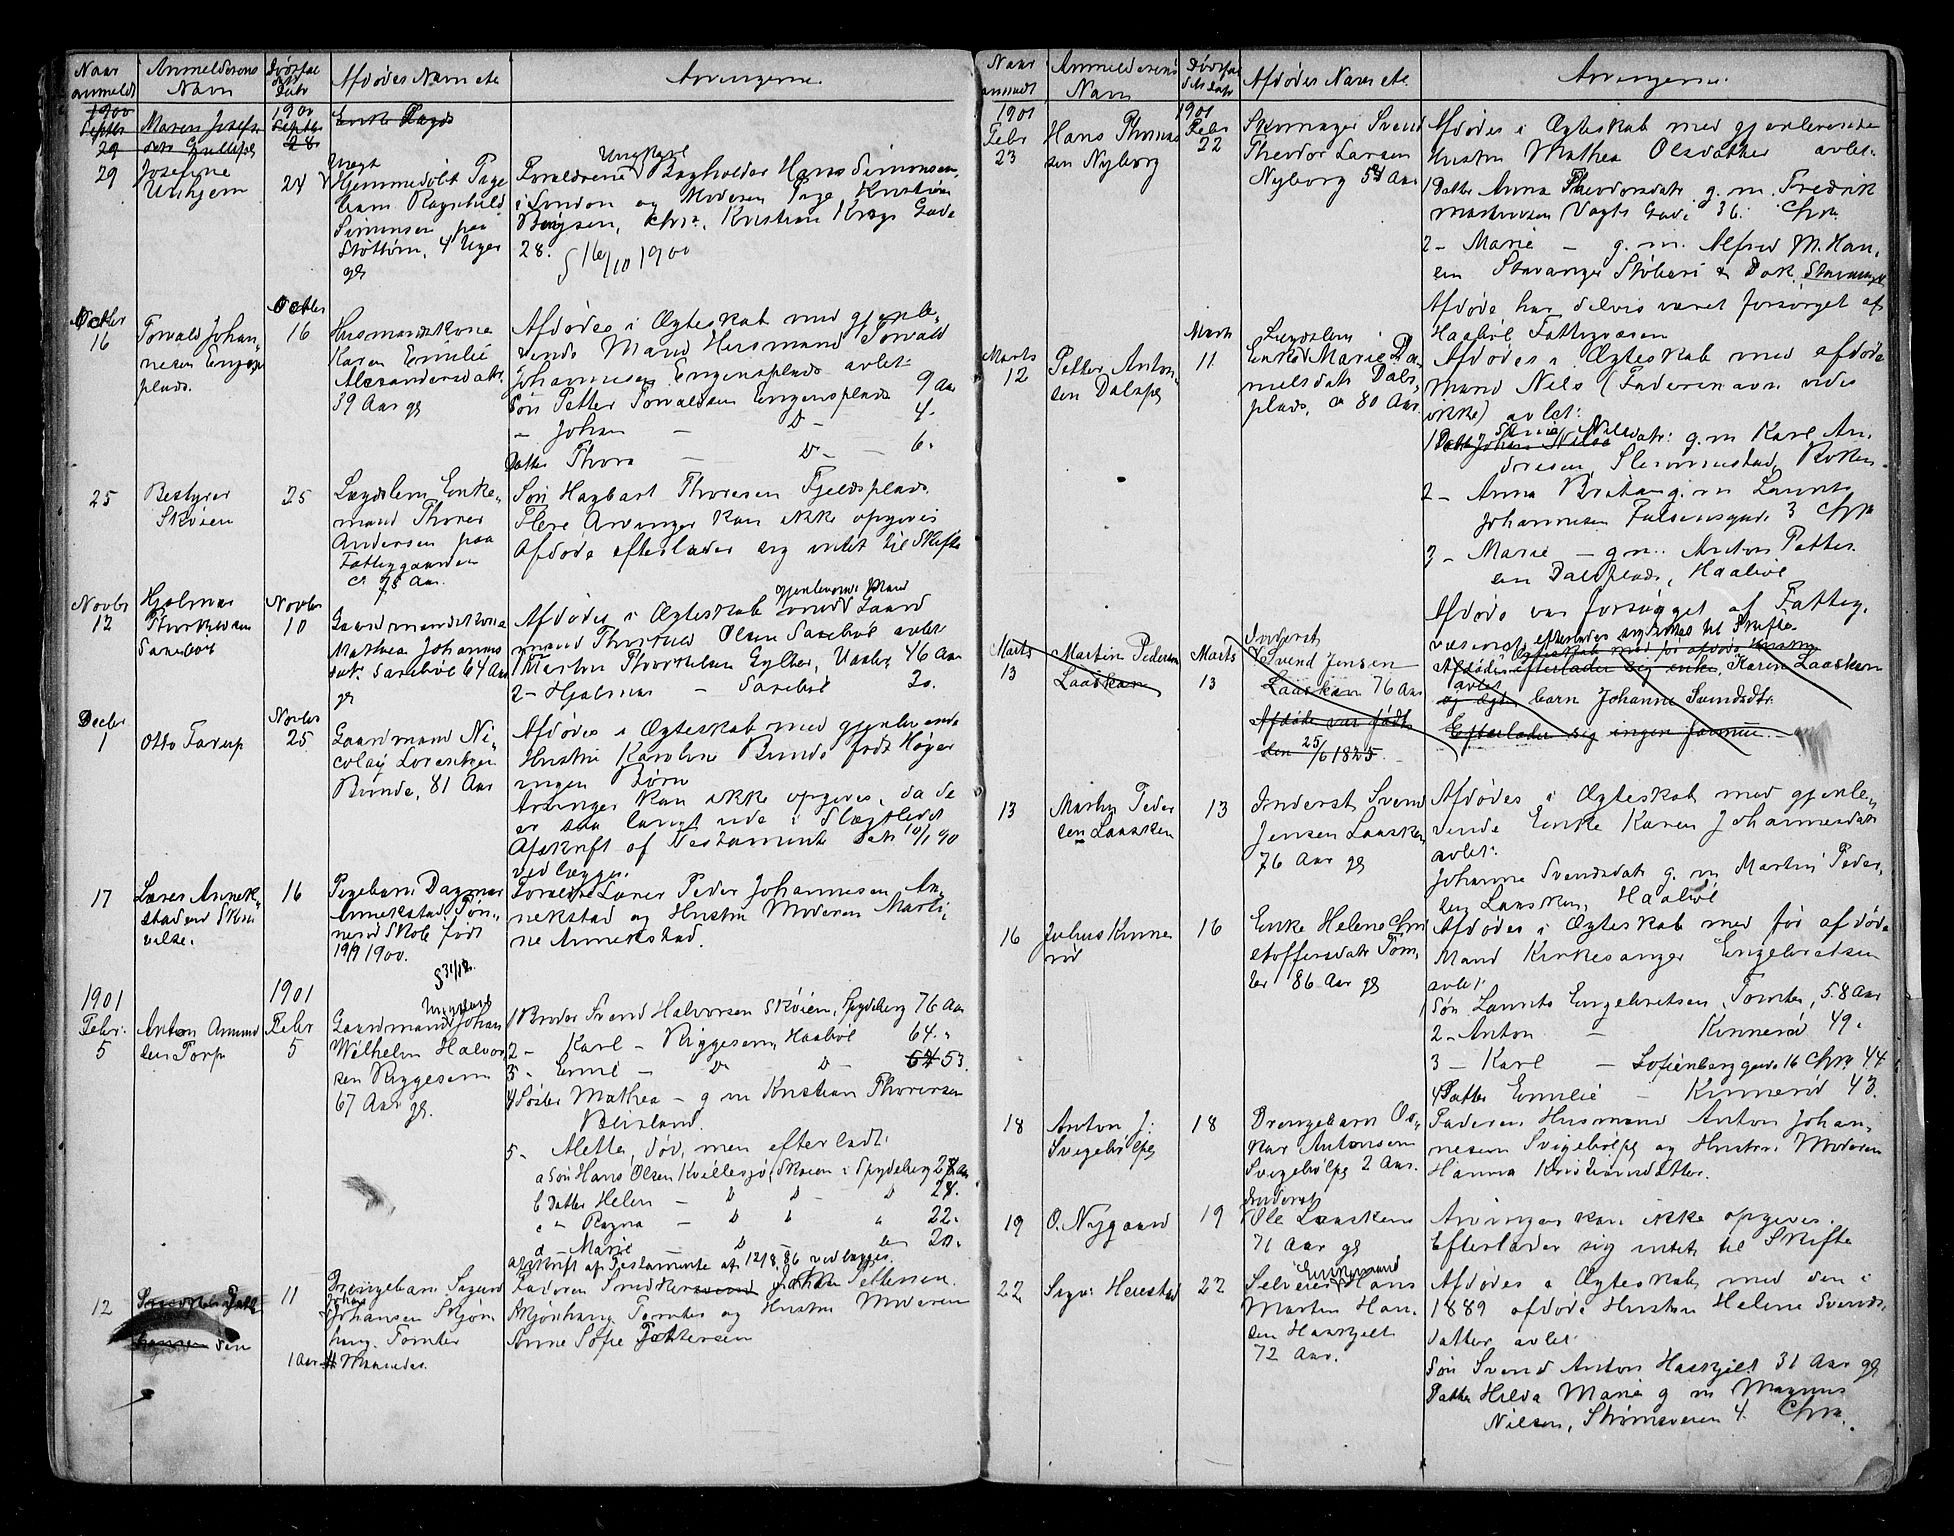 Naar anmeldt
Anmelderens Navn
Dødsfal dets Datr
Afdødes Navn etc
Arvingerne.
1900
Septbr 29
Maren Josefs
1900
Septbr 28
Enke
29
Josefine
24
Uægt
Hjemmedøbt Pige
barn Ragnhild
Simensen paa
4 Uger
gl
Ungkarl
Forældrene Bagholder Hans Simensen
i London og Moderen Pige Kristine
Kristian Krogs Gade
28.
§ 16/10 1900
Octbr
16
Torvald Johan-
nesen Engens
plads.
Octbr
16
Husmandskone
Karen Emilie
Alexandersdatr
39 Aar gl
Afdødes i Ægteskab med gjenle-
vende Mand Husmand Torvald
Johannesen Engensplads avlet
Søn Petter Torvaldsen Engensplads 9 Aar
- Johan - D - 4.
Datter Thora - D - 6.
25
Bestyrer
Skøien
25
Lægdslem Enke-
mand Thorer
Andersen paa
Fattiggaarden
ca 75 Aar.
Søn Hagbart Thoresen Fjeldsplads.
Flere Arvinger kan ikke opgives
Afdøde efterlader sig intet til Skifte
Novbr
12
Hjalmar
Thorkildsen
Sarebøl
Novbr
10
Gaardmandskone
Mathea Johannes
datr. Sarebøl 64 Aar
gl
gjenlevende Mand
Afdødes i Ægteskab med Gaard
mand Thorkild Olsen Sarebøl avlet
1 Søn Martin Thorkelsen Gylber, Vaaler 46 Aar
2 - Hjalmar - Sarebøl 30.
Decbr
1
Otto Tarup
Novbr
25
Gaardmand Ni-
colay Lorentzen
Bunde, 81 Aar
Afdødes i Ægteskab med gjenlevende
Hustru Karoline Bunde født Høyer
ingen Børn
Arvinger kan ikke opgives, da de
er saa langt ude i Slægtledet
Afskrift af Testamente Datr 10/1 90
vedlægges.
17
Lærer Annek-
stad ved Skri
velse.
16
Pigebarn Dagmar
Annekstad
Skole født
19/9 1900.
§ 31/12.
Forældre Lærer Peder Johannesen An-
nekstad og Hustru Moderen Marti-
ne Annekstad.
1901
Febr.
5
Anton Amund
sen Torp
1901
Febr
5
Ungkarl
Gaardmand Johan
Wilhelm Halvor
sen Riggesem
67 Aar gl.
1 Broder Svend Halvorsen Skøien, Spydeberg 76 Aar
2 - Karl - Riggesem, Haabøl 64.
3 - Emil - D - D - 64 53.
4 Søster Mathea - g m Kristian Thorersen
5 - Alette, død, men efterladt:
a Søn Hans Olsen Kvillesjø, Skøien i Spydeberg 27 Aar
b Datter Helen - D D D 24.
c - Ragna - D D 22.
d - Marie D 20.
Afskrift af Testamente af 12/8 86 vedlægges.
12
11
Drengebarn Sigurd
Johan
Johansen Skjøn
haug. Tomter
1 Aar 11 Maaneder.
Faderen Smed Johan Pettersen
Skjønhaug Tomter og Hustru Moderen
Anne Sofie Pettersen
Naar anmeldt
Anmelderens Navn
Dødsfal dets Datr
Afdødes Navn etc.
Arvingerne.
1901
Febr
23
Hans Thomas
sen Nyborg
1901
Febr
22
Skomager Svend
Theodor Larsen
Nyborg 54 Aar
Afdødes i Ægteskab med gjenlevende
Hustru Mathea Olsdatter avlet:
1 Datter Anna Theodorsdatr g. m. Fredrik
Martinsen Vogts Gade 36. Chra
2 - Marie - g. m. Alfred M. Han-
sen Stavanger Støberi & Dok, Stavanger
Afdøde har delvis været forsørget af
Haabøl Fattigvæsen
Marts
12
Petter Anton-
sen Dalspl
Marts
11
Lægdslem
Enke Marie Da-
nielsdatr Dals-
plads, ca 80 Aar
Afdødes i Ægteskab med afdøde
Mand Nils (Faderens navn vides
ikke) avlet:
1 Datter Nilsdatr: g. m Karl An-
dresen, Slemmestad, Røken
2 - Anna g. m Laurits
Johannesen Falsensgade 3 Chra
3 - Marie - g m. Anton Petter
sen Dalsplads, Haabøl
Afdøde var forsørget af Fattig-
væsenet, efterlader sig intet til Skifte.
Marts
13
Martin Pedersen
Laasken
Marts
13
Inderst
Svend Jensen
Laasken 76 Aar
Afdøde var født
den 25/6 1825.
Ægteskab med før afdøde
Afdødes efterlader sig enke, Karen Laasken
avlet
og Ægte barn Johanne Svendsdtr.
Efterlader sig ingen formue.
13
Martin Peder
sen Laasken
13
Inderst Svend
Jensen Laasken
76 Aar gl
Afdødes i Ægteskab med gjenle-
vende Enke Karen Johannesdatr
avlet:
Johanne Svendsdatr g. m Martin Peder-
sen Laasken, Haabøl
16
Julius Kinne
rød
16
Enke Helene Chri
stoffersdatr Tom-
ter 86 Aar gl
Afdødes i Ægteskab med før afdøde
Mand Kirkesanger Engebretsen
avlet:
1 Søn Laurits Engebretsen, Tomter, 58 Aar
2 - Anton - Kinnerød 49.
3 - Karl - Sofienberggade 16 Chra 44
4 Datter Emilie - Kinnerød 43.
18
Anton J.
Svigebølpl
18
Drengebarn Os-
kar Antonsen
Svigebølpl 2 Aar.
Faderen Husmand Anton Johan-
nesen Svigebølpl og Hustru Moderen
Hanna Kristiansdatter.
19
O. Nygaard
19
Inderst
Ole Laasken
71 Aar gl
Arvinger kan ikke opgives.
Efterlader sig intet til Skifte
22
Sigv. Herrestad
22
Enkemand
Selveier Hans
Martin Han-
sen Haaskjelt
72 Aar.
Afdødes i Ægteskab med den i
1889 afdøde Hustru Helene Svends-
datter avlet:
Søn Svend Anton Haaskjelt 31 Aar gl
Datter Hilda Marie g m Magnus
Nilsen, Strømsveien 4. Chra.